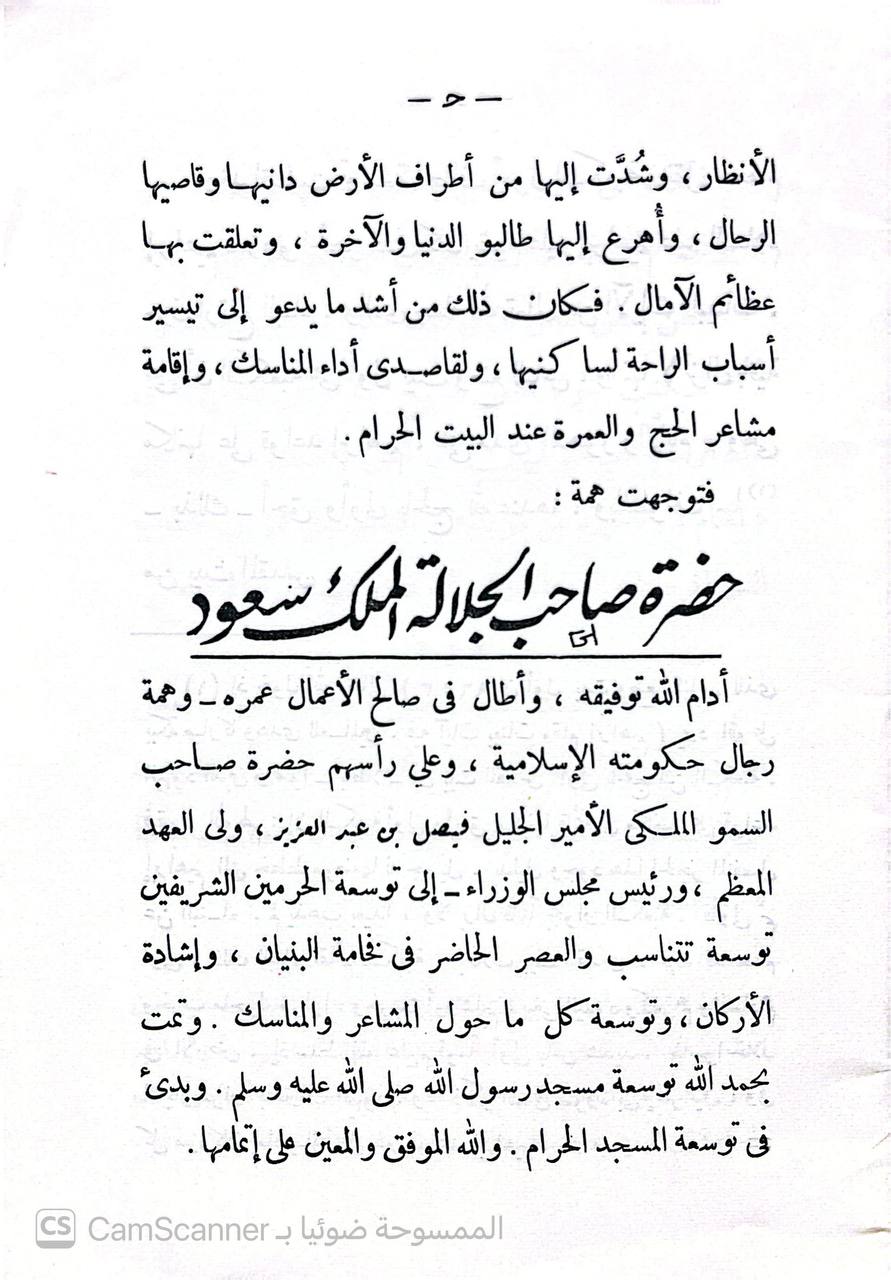 — ح —
الأنظار ، وشُدَّت إليها من أطراف الأرض دانيها وقاصيها
الرحال ، وأُهرع إليها طالبو الدنيا والآخرة ، وتعلقت بها
عظائم الآمال . فكان ذلك من أشد ما يدعو إلى تيسير
أسباب الراحة لساكنيها ، ولقاصدى أداء المناسك ، وإقامة
مشاعر الحج والعمرة عند البيت الحرام .
فتوجهت همة :
حضرة صاحب الجلالة الملك سعود
أدام الله توفيقه ، وأطال فى صالح الأعمال عمره ــ وهمة
رجال حكومته الإسلامية ، وعلي رأسهم حضرة صاحب
السمو الملكى الأمير الجليل فيصل بن عبد العزيز ، ولى العهد
المعظم ، ورئيس مجلس الوزراء ــ إلى توسعة الحرمين الشريفين
توسعة تتناسب والعصر الحاضر فى فخامة البنيان ، وإشادة
الأركان ، وتوسعة كل ما حول المشاعر والمناسك . وتمت
بحمد الله توسعة مسجد رسول الله صلى الله عليه وسلم . وبدئ
فى توسعة المسجد الحرام . والله الموفق والمعين على إتمامها .
CS الممسوحة ضوئيا بـ CamScanner